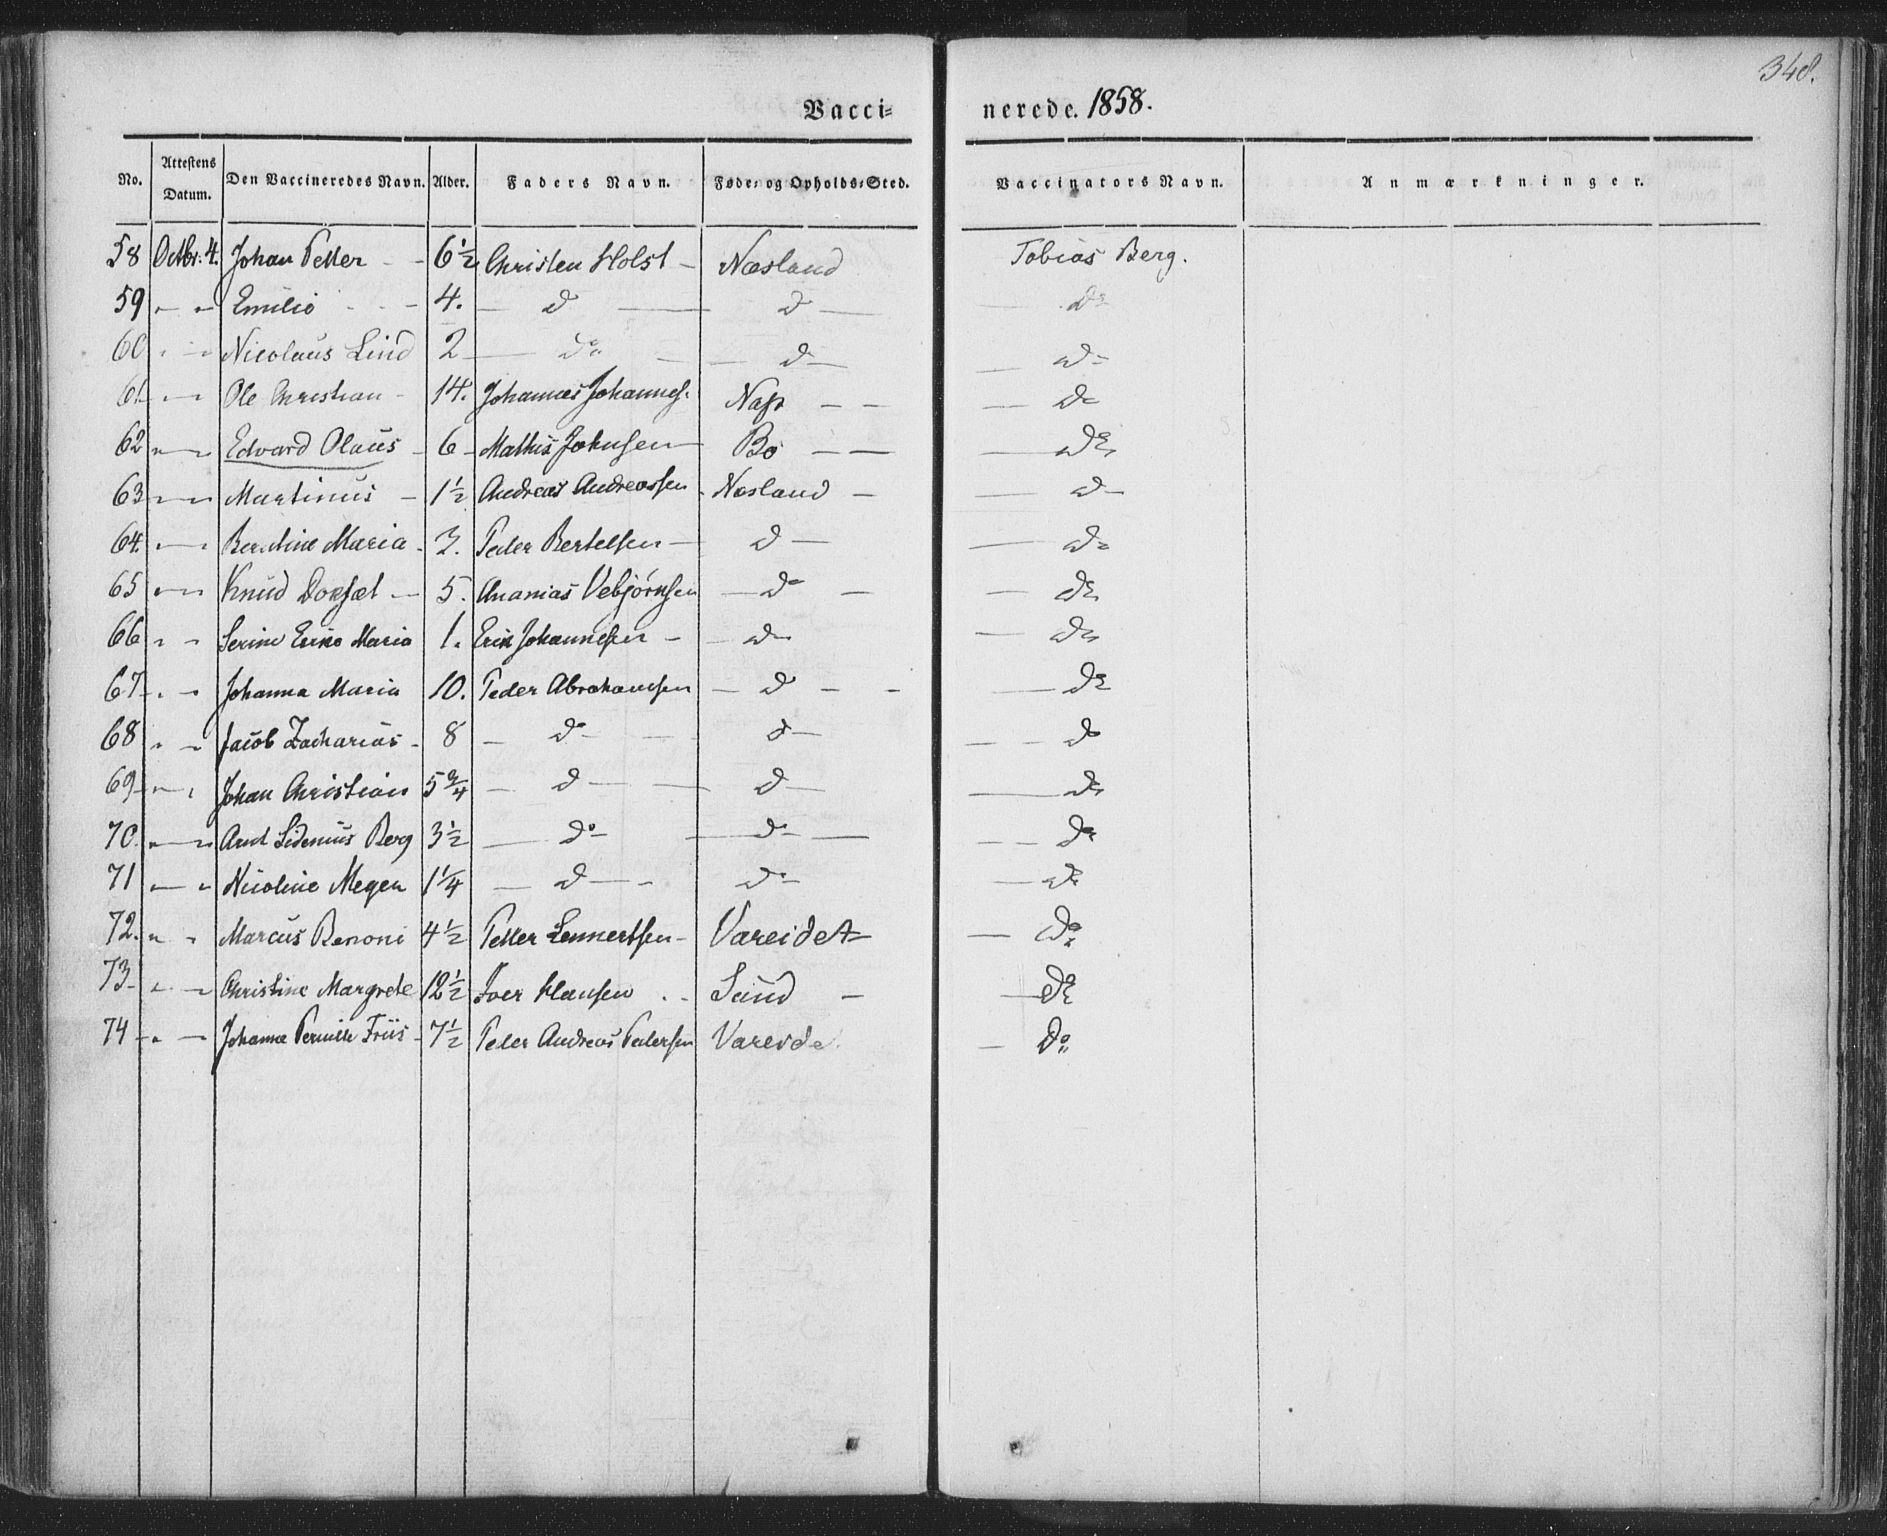 348.
Vacci= nerede. 1858.
No. Attestens Datum. Den Vaccineredes Navn. Alder. Faders Navn. Føde- og Opholds-Sted. Vaccinators Navn. Anmærkninger.
58 Octbr. 4. Johan Petter - - 6 1/2 Christen Holst - Næsland Tobias Berg.
59 " — " Emilie - - - 4. — d — d — — do
60 " — " Nicolaus Lind 2 — do — — d — — d —
61 " — " Ole Christian - 14. Johannes Johannes. Nap — — — do
62 " — " Edvard Olaus - 6 - Mathis Johnsen — Bø — — — do
63 " — " Martinus — 1 1/2 Andreas Andreassen - Næsland — — d —
64. " — " Maria - 3. Peder Bertelsen — d — — do
65 " — " Knud — 5. Ananias Vebjörnsen — do — — do
66 " " Serine Maria 1. Erik Johannesen — — do — do
67 - " — " Johanna Maria 10. Peder Abrahamsen — d — - — do
68 " — " Jacob Zacharias - 8 — do — — d — — — do
69 - " — " Johan Christian 5 3/4 — d — — d — — do
70. " — " Arnt Sidenius Berg 3 1/2 — do — — do — — — do
71 " — " Nicoline Meyer 1 1/4 — d — - do — — do
72. " " Marcus Benoni 4 1/2 Petter Lennertsen - Vareidet — do
73 - " — " Christine Margrete 12 1/2 Iver Hansen . . Sund — — do
74 - " — Johanna Pernille Friis - 7 1/2 Peder Andreas Pedersen Vareide. — do